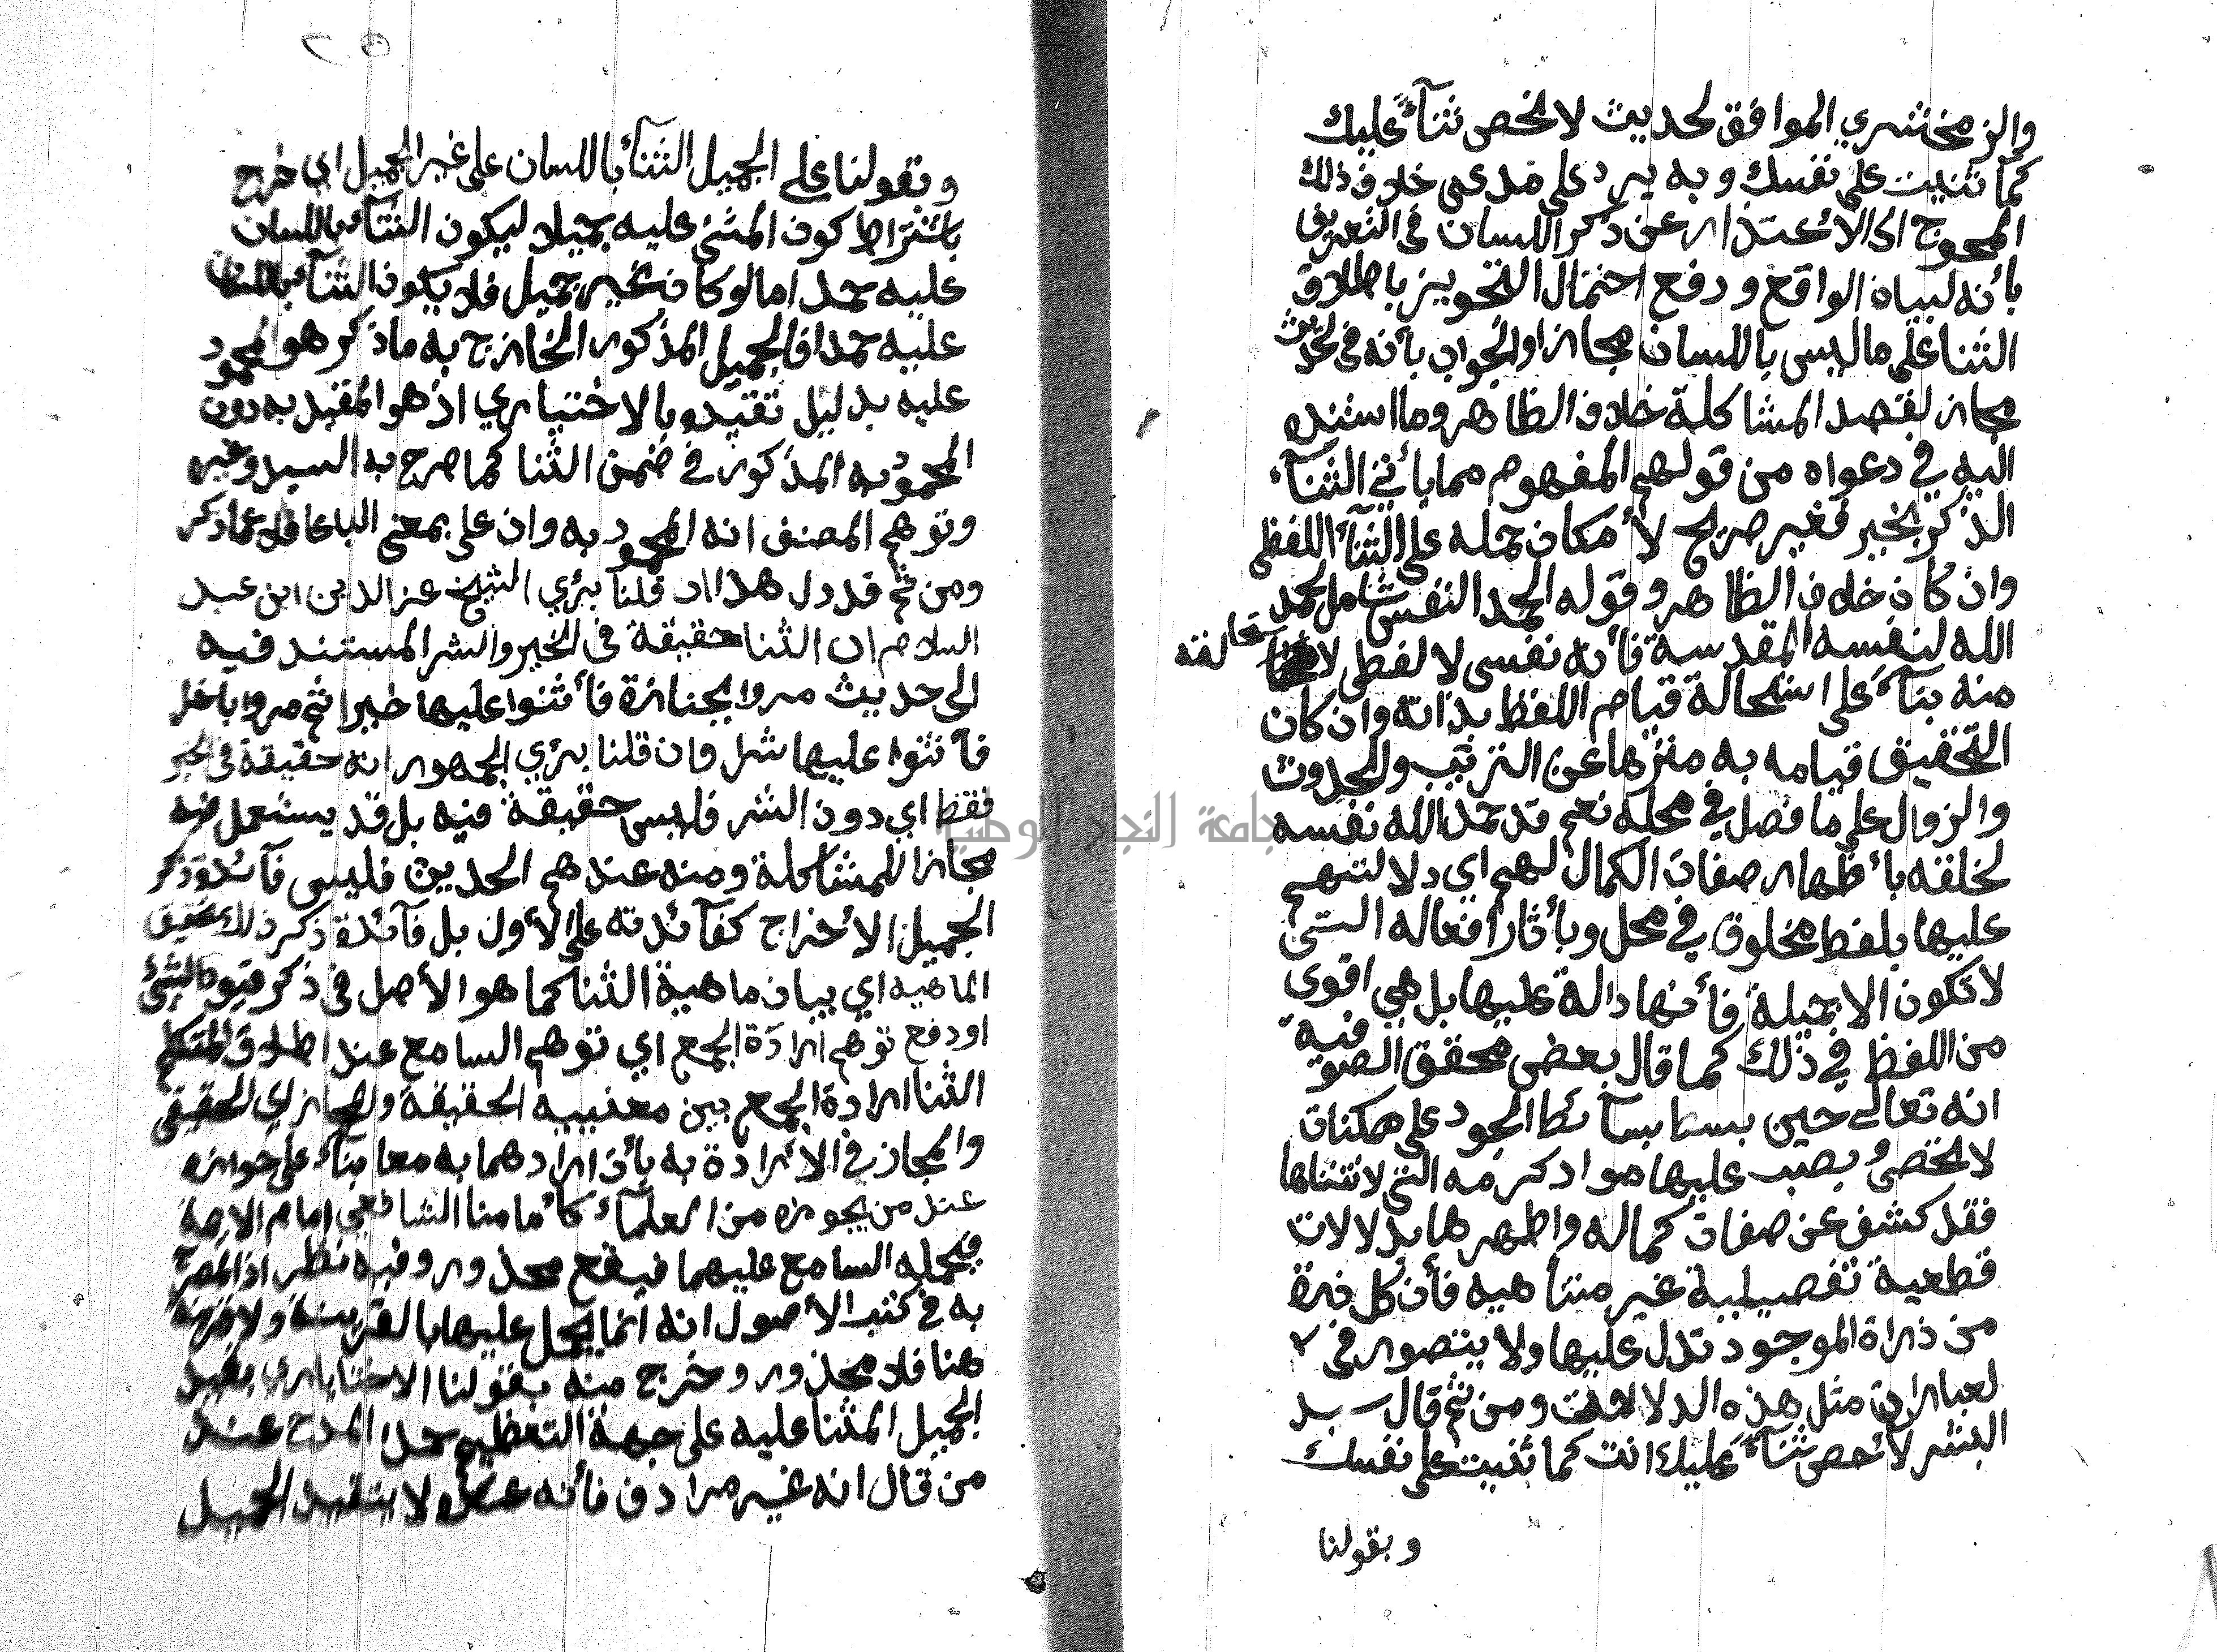 والزمخشري الموافق لحديث لا نحصي ثنآءً عليك
كمآ ثنيت على نفسك وبه يرد على مدعى خلاف ذلك
المحوج الى الأعتذار عن ذكر اللسان في التعريف
بأنه لبيان الواقع ودفع احتمال التجويز باطلاق
الثنا على ما ليس باللسان مجازا والجواب بأنه في الحديث
مجاز لقصد المشاكلة خلاف الظاهر وما استند
اليه في دعواه من قولهم المفهوم مما يأتي الثنآء
الذكر بخير فغير صريح لأمكان حمله على الثنآء اللفظي
وان كان خلاف الظاهر وقوله الحمد النفسي شامل لحمد
الله لنفسه المقدسة فأنه نفسى لا لفظي لاستحالته
منه بنآءً على استحالة قيام اللفظ بذاته وان كان
التحقيق قيامه به منزها عن الترتيب والحدوث
والزوال على ما فصل في محله نعم قد حمد الله نفسه
لخلقه بأظهار صفات الكمال لهم اي دلالتهم
عليها بلفظ مخلوق في محل وبأثار افعاله التي
لا تكون الا جميلة فأنها دالة عليها بل هي اقوى
من اللفظ في ذلك كما قال بعض محقق الصوفية
انه تعالى حين بسط بسآئط الجود على ممكنات
لا تحصى وبصب عليها مواد كرمه التي لا تتناها
فقد كشف عن صفات كماله واظهرها بدلالات
قطعية تفصيلية غير متناهيه فأن كل ذرة
من ذراة الموجود تدل عليها ولا يتصور في
لعبارات مثل هذه الدلالات ومن ثم قال سيد
البشر لا أحصي ثنآءً عليك انت كما ثنيت على نفسك
وبقولنا
وبقولنا على الجميل الثنآء باللسان على غير الجميل اي خرج
باشتراط كون المثنى عليه جميلا ليكون الثنآء باللسان
عليه حمدا ما لو كان غير جميل فلا يكون الثنآء باللسان
عليه حمدا فالجميل المذكور الخارج به ما ذكر هو المحمود
عليه بدليل تقيده بالاختياري اذ هو المقيد به دون
المحمود به المذكور في ضمن الثنا كما صرح به السيد وغيره
وتوهم المصنف انه المحمود به وان على بمعنى الباء غافلا عما ذكر
ومن ثم قد دل هذا ان قلنا برئي الشيخ عز الدين ابن عبد
السلام ان الثنا حقيقة في الخير والشر المستند فيه
الى حديث مروا بجنازة فأثنوا عليها خيرا ثم مروا باخرى
فأثنوا عليها شرا فان قلنا برئي الجمهور انه حقيقة في الخير
فقط اي دون الشر فليس حقيقة فيه بل قد يستعمل فيه
مجازا للمشاكلة ومنه عندهم الحديث فليس فآئدة ذكر
الجميل الأخراج كفآئدته على الأول بل فآئدة ذكر ذلك تحقيق
الماهيه اي بيان ماهية الثنا كما هو الأصل في ذكر قيود الشئ
او دفع توهم ارادة الجمع اي توهم السامع عند اطلاق المتكلم
الثنا ارادة الجمع بين معنييه الحقيقة والمجاز اي الحقيقي
والمجاز في الأرادة به بأن ارادهما به معا بنآء على جوازه
عند من يجوزه من العلمآء كأمامنا الشافعي امام الايمة
فيحمله السامع عليهما فيقع محذور وفيه نظر اذ المصرح
به في كتب الأصول انه انما يحمل عليها بالقرينة ولا قرينة
هنا فلا محذور وخرج منه بقولنا الاختياري بقيد
الجميل المثنا عليه على جهة التعظيم حمدا المدح عند
من قال انه غير مرادف فأنه عنده لا يتقيد الجميل